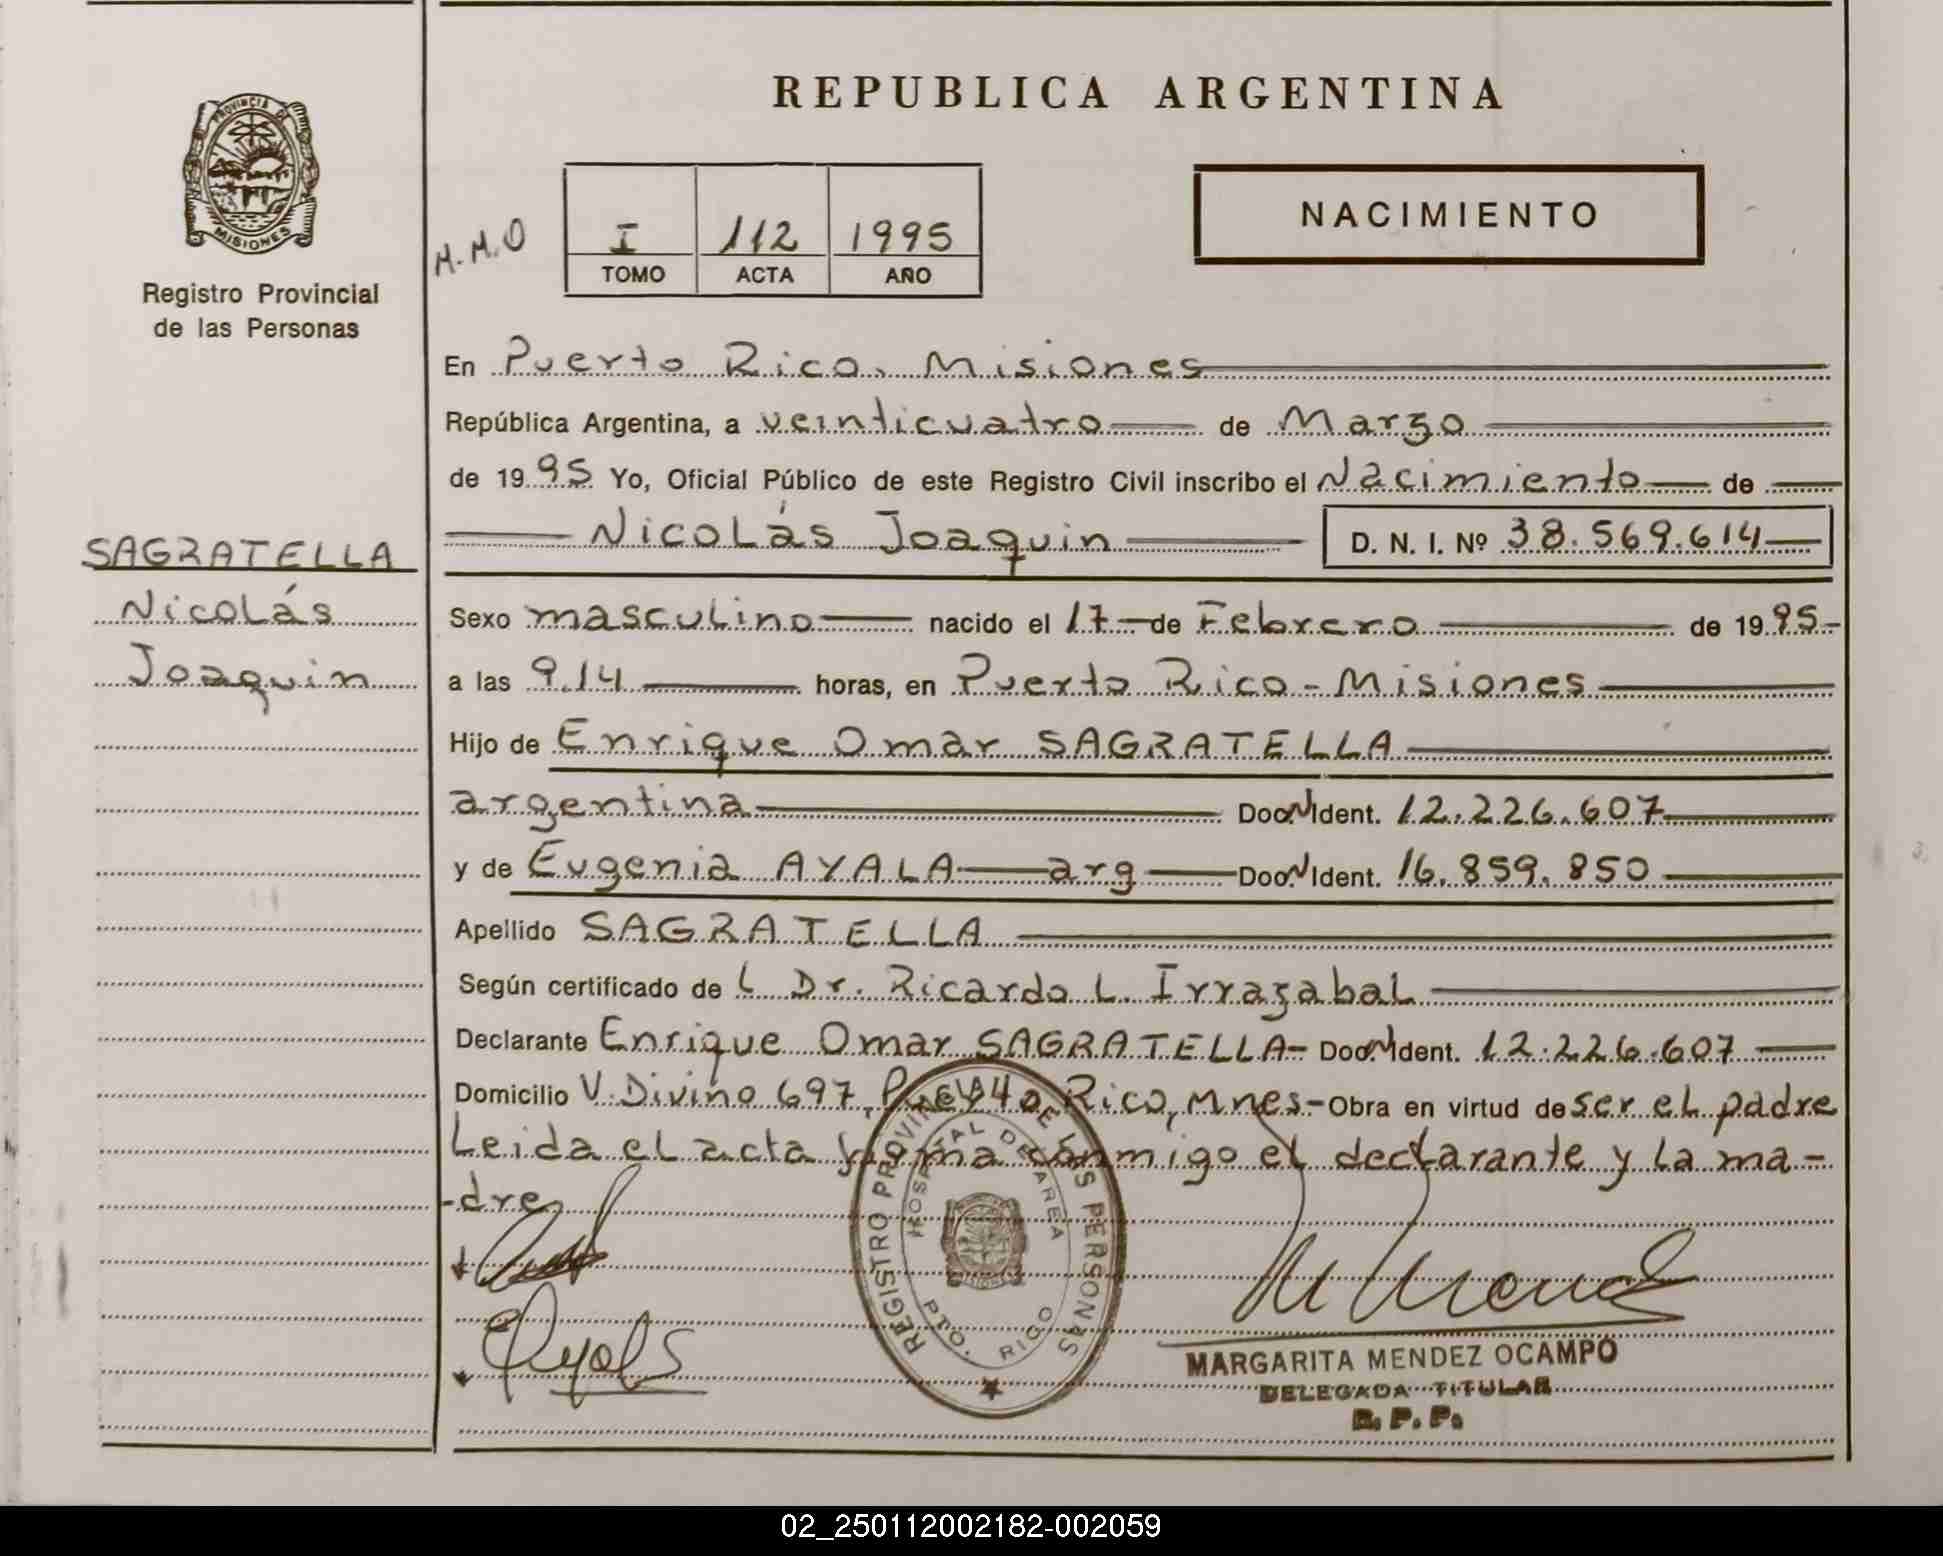 REPUBLICA ARGENTINA
PROVINCIA DE
MISIONES
Registro Provincial
de las Personas
M.M.O
I 112 1995
TOMO ACTA AÑO
NACIMIENTO
En Puerto Rico, Misiones
República Argentina, a veinticuatro de Marzo
de 1995 Yo, Oficial Público de este Registro Civil inscribo el Nacimiento de
Nicolás Joaquin D. N. I. Nº 38.569.614
SAGRATELLA
Nicolás
Joaquin
Sexo masculino nacido el 17 de Febrero de 1995
a las 9.14 horas, en Puerto Rico - Misiones
Hijo de Enrique Omar SAGRATELLA
argentina Doc. N Ident. 12.226.607
y de Eugenia AYALA arg Doc. N Ident. 16.859.850
Apellido SAGRATELLA
Según certificado de L Dr. Ricardo L. Irrazabal
Declarante Enrique Omar SAGRATELLA - Doc. N Ident. 12.226.607
Domicilio V. Divino 697, Puerto Rico, Mnes - Obra en virtud de ser el padre
Leida el acta firma conmigo el declarante y la ma-
-dre
REGISTRO PROVINCIAL DE LAS PERSONAS
HOSPITAL DE AREA
PTO. RICO
MARGARITA MENDEZ OCAMPO
DELEGADA TITULAR
R. P. P.
02_250112002182-002059